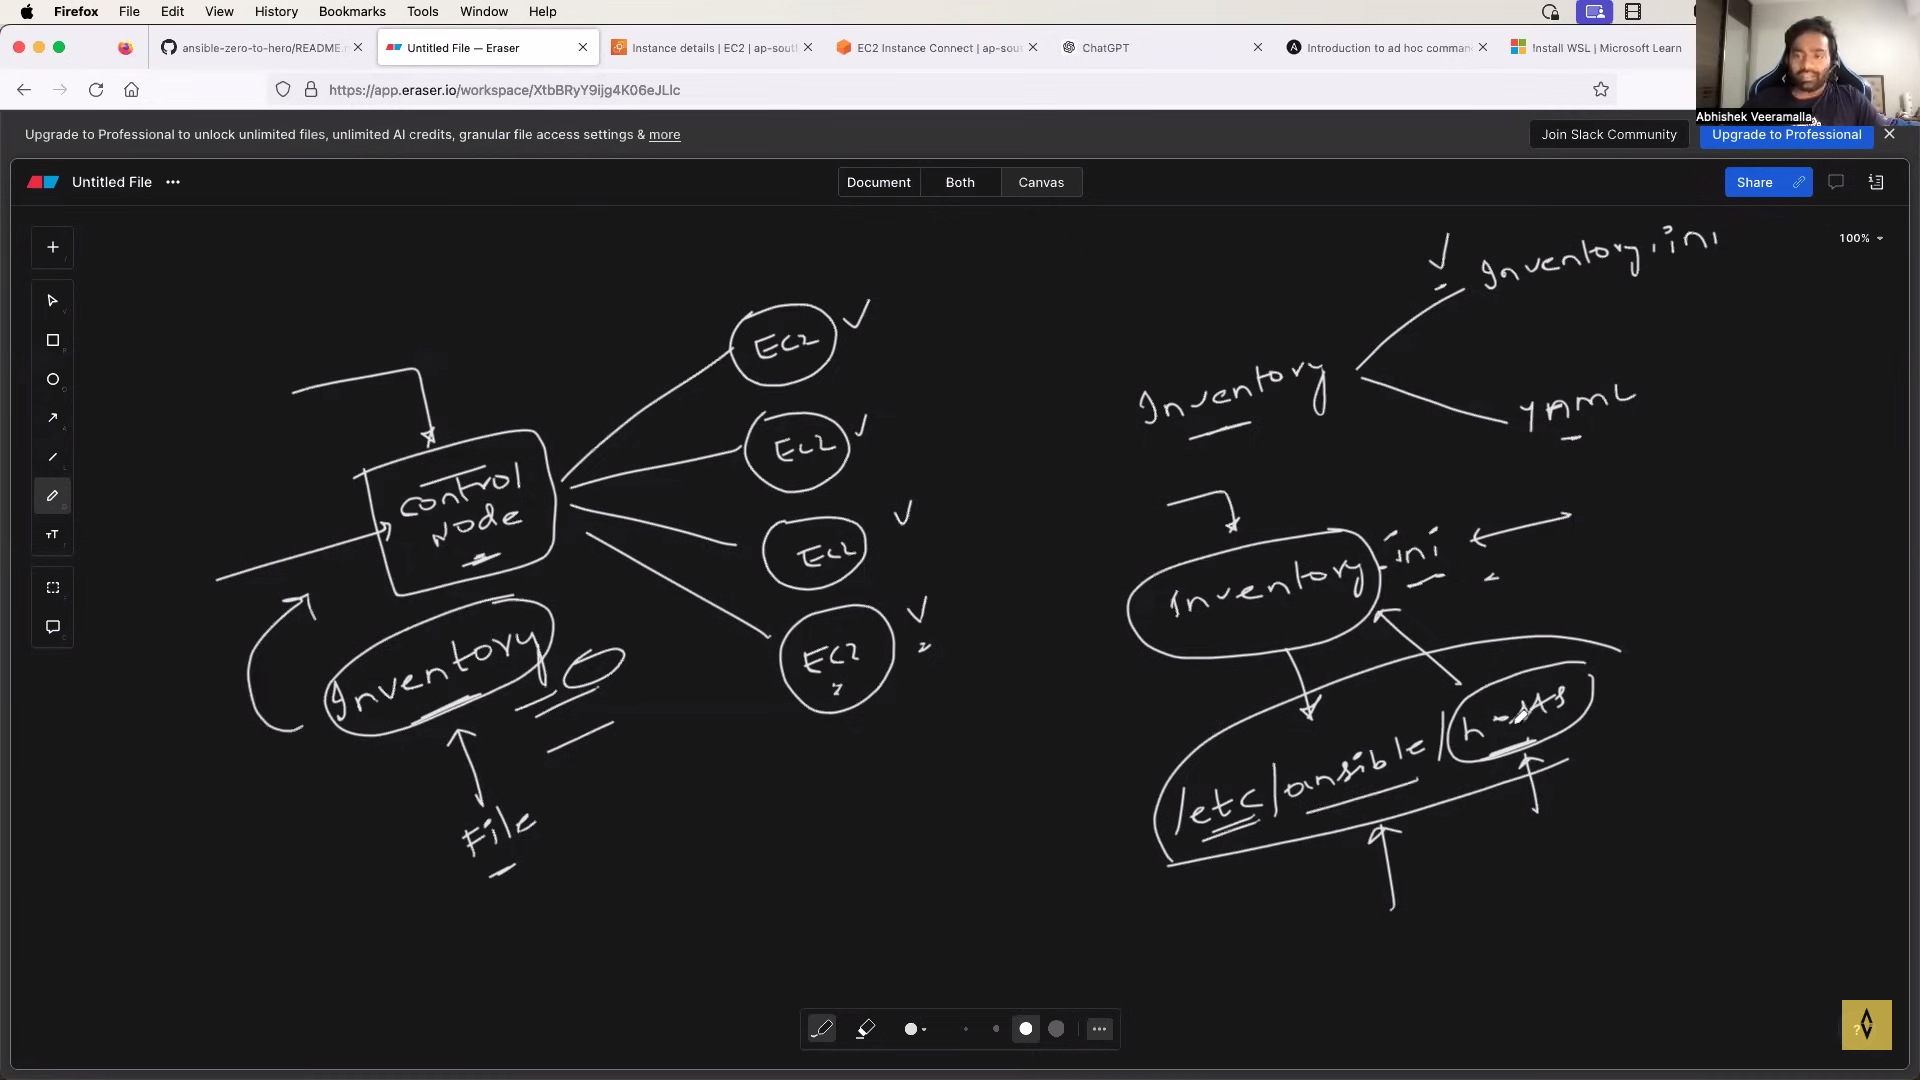 Firefox File Edit View History Bookmarks Tools Window Help
ansible-zero-to-hero/README.
Untitled File — Eraser
Instance details | EC2 | ap-sout
EC2 Instance Connect | ap-sou
ChatGPT
Introduction to ad hoc comman
Install WSL | Microsoft Learn
https://app.eraser.io/workspace/XtbBRyY9ijg4K06eJLlc
Abhishek Veeramalla
Upgrade to Professional to unlock unlimited files, unlimited AI credits, granular file access settings & more
Join Slack Community
Upgrade to Professional
Untitled File ...
Document Both Canvas
Share
100%
EC2
EC2
EC2
EC2
control
Node
Inventory
File
Inventory.ini
Inventory
YAML
Inventory.ini
/etc/ansible/hosts